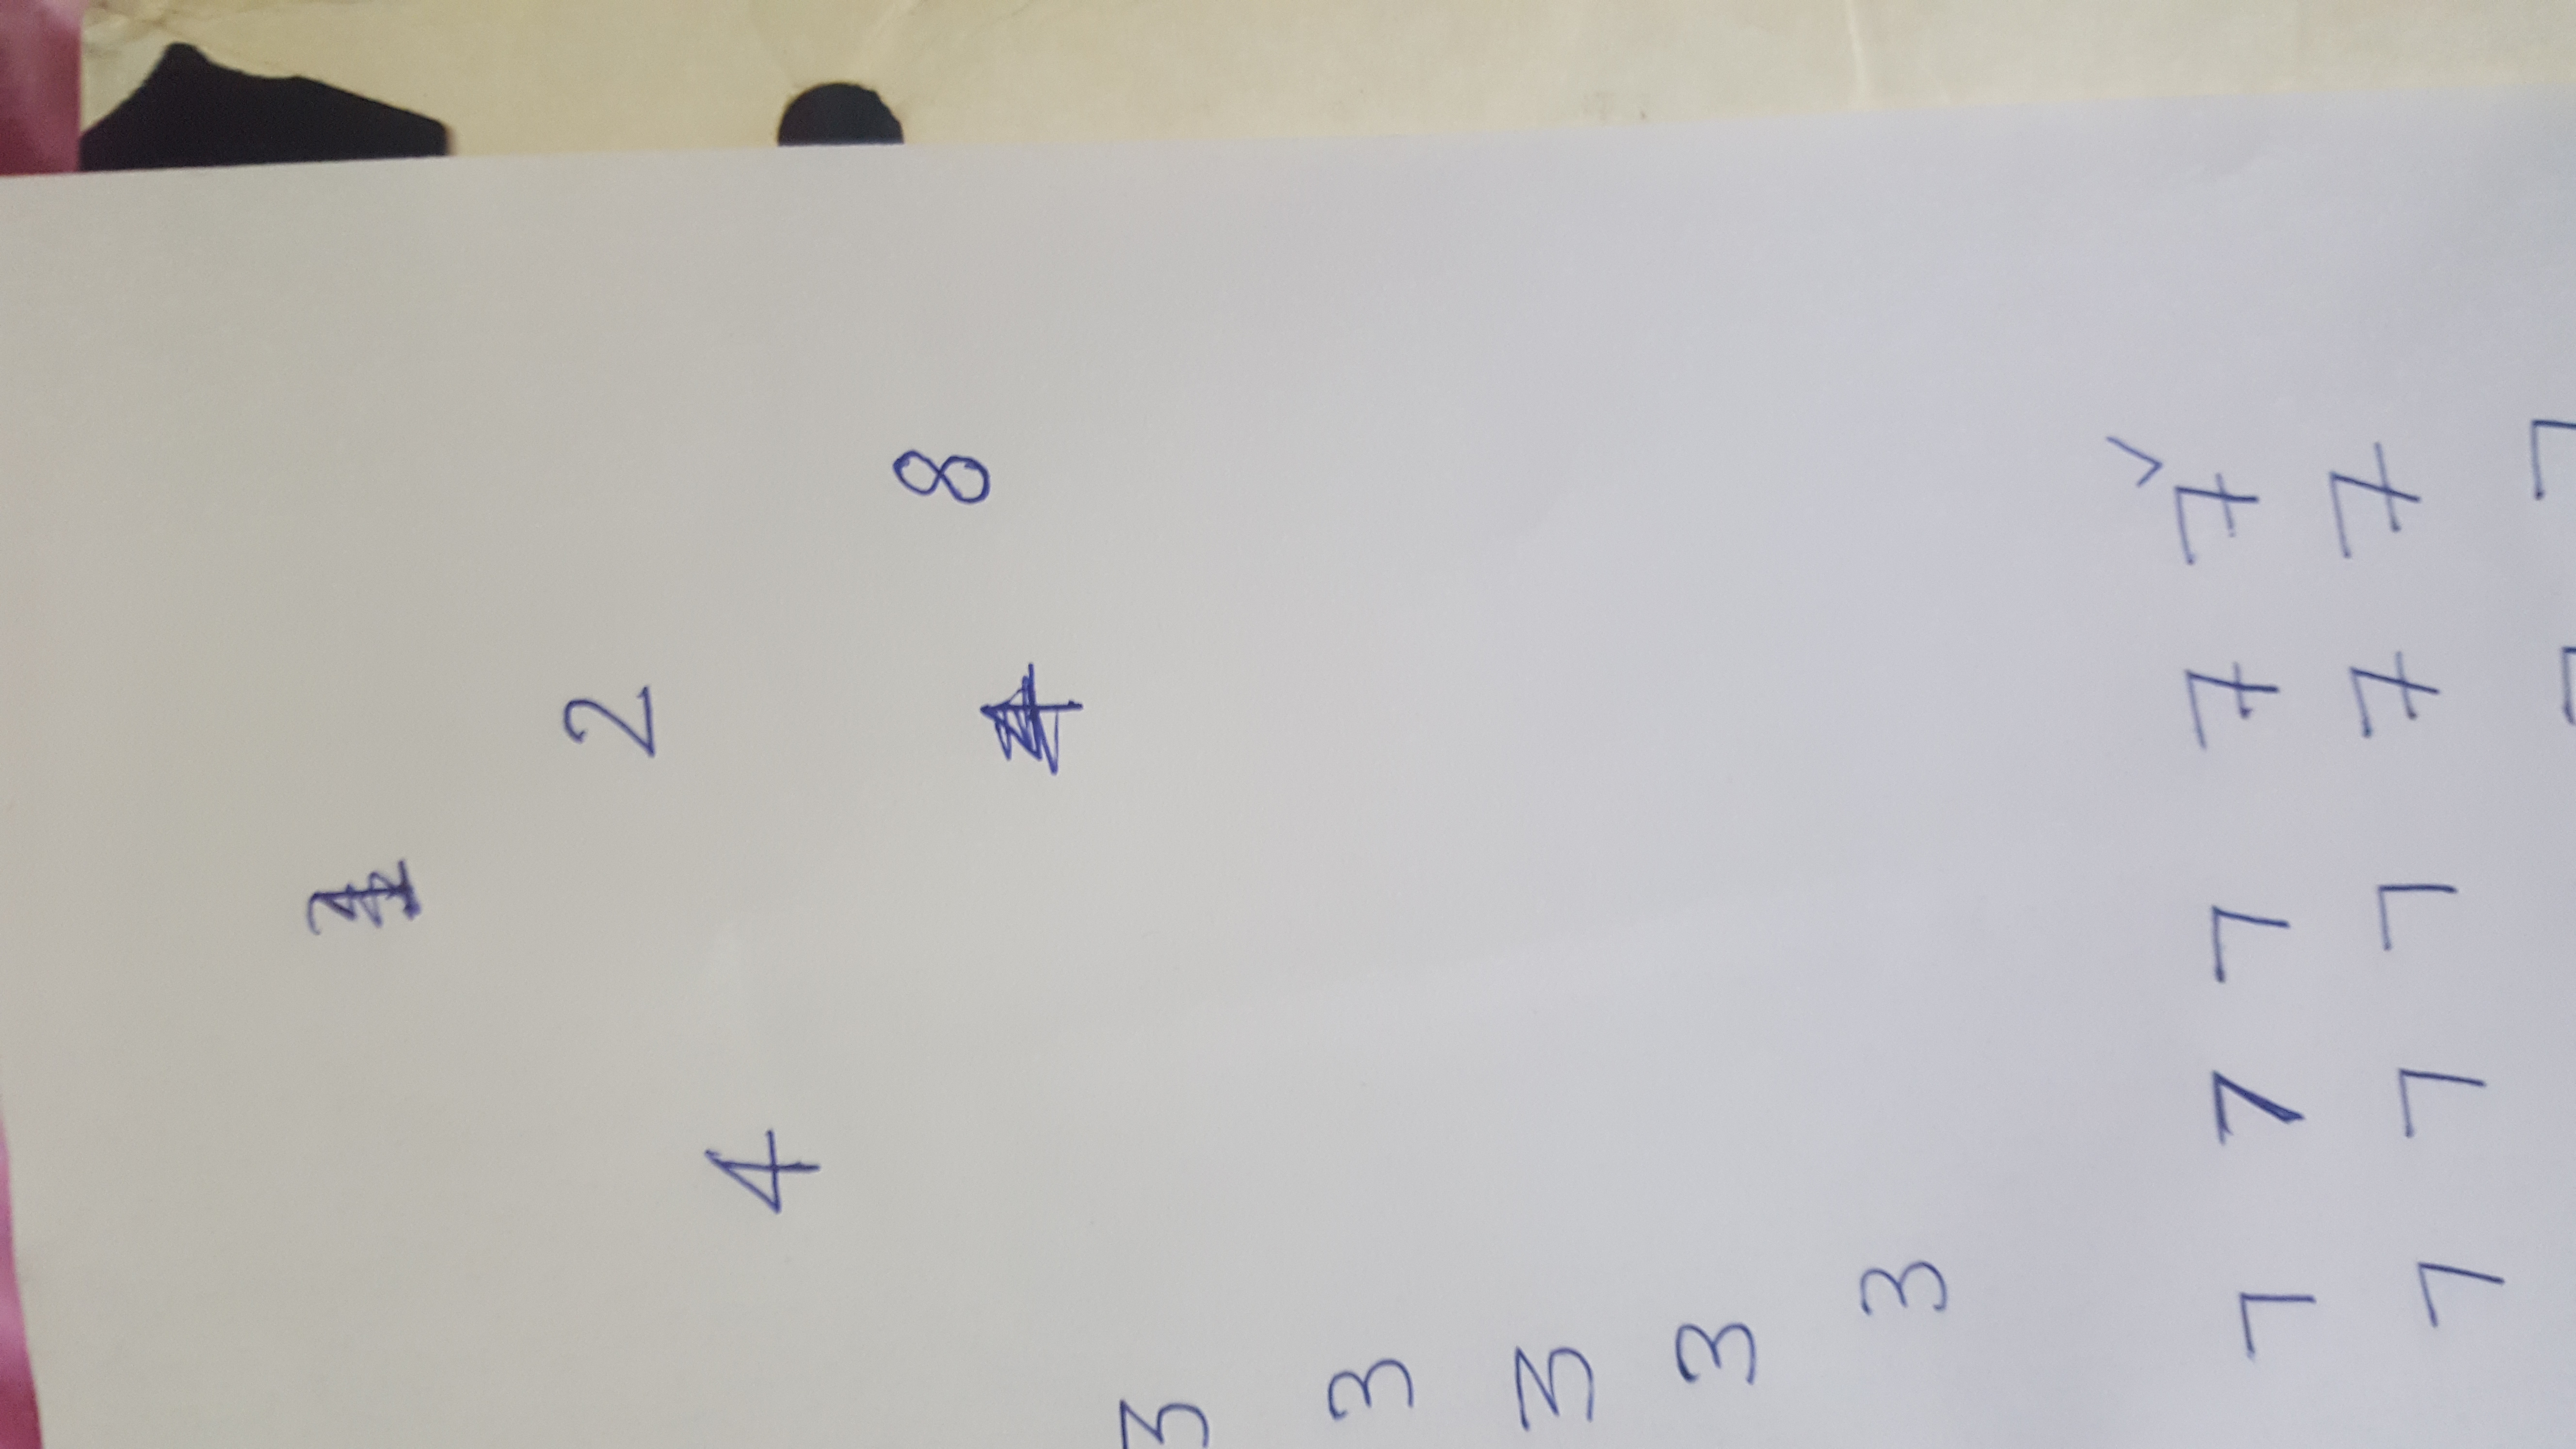 2
4
8
3
3
3
3
3
7 7 7 7 7
7 7 7 7 7